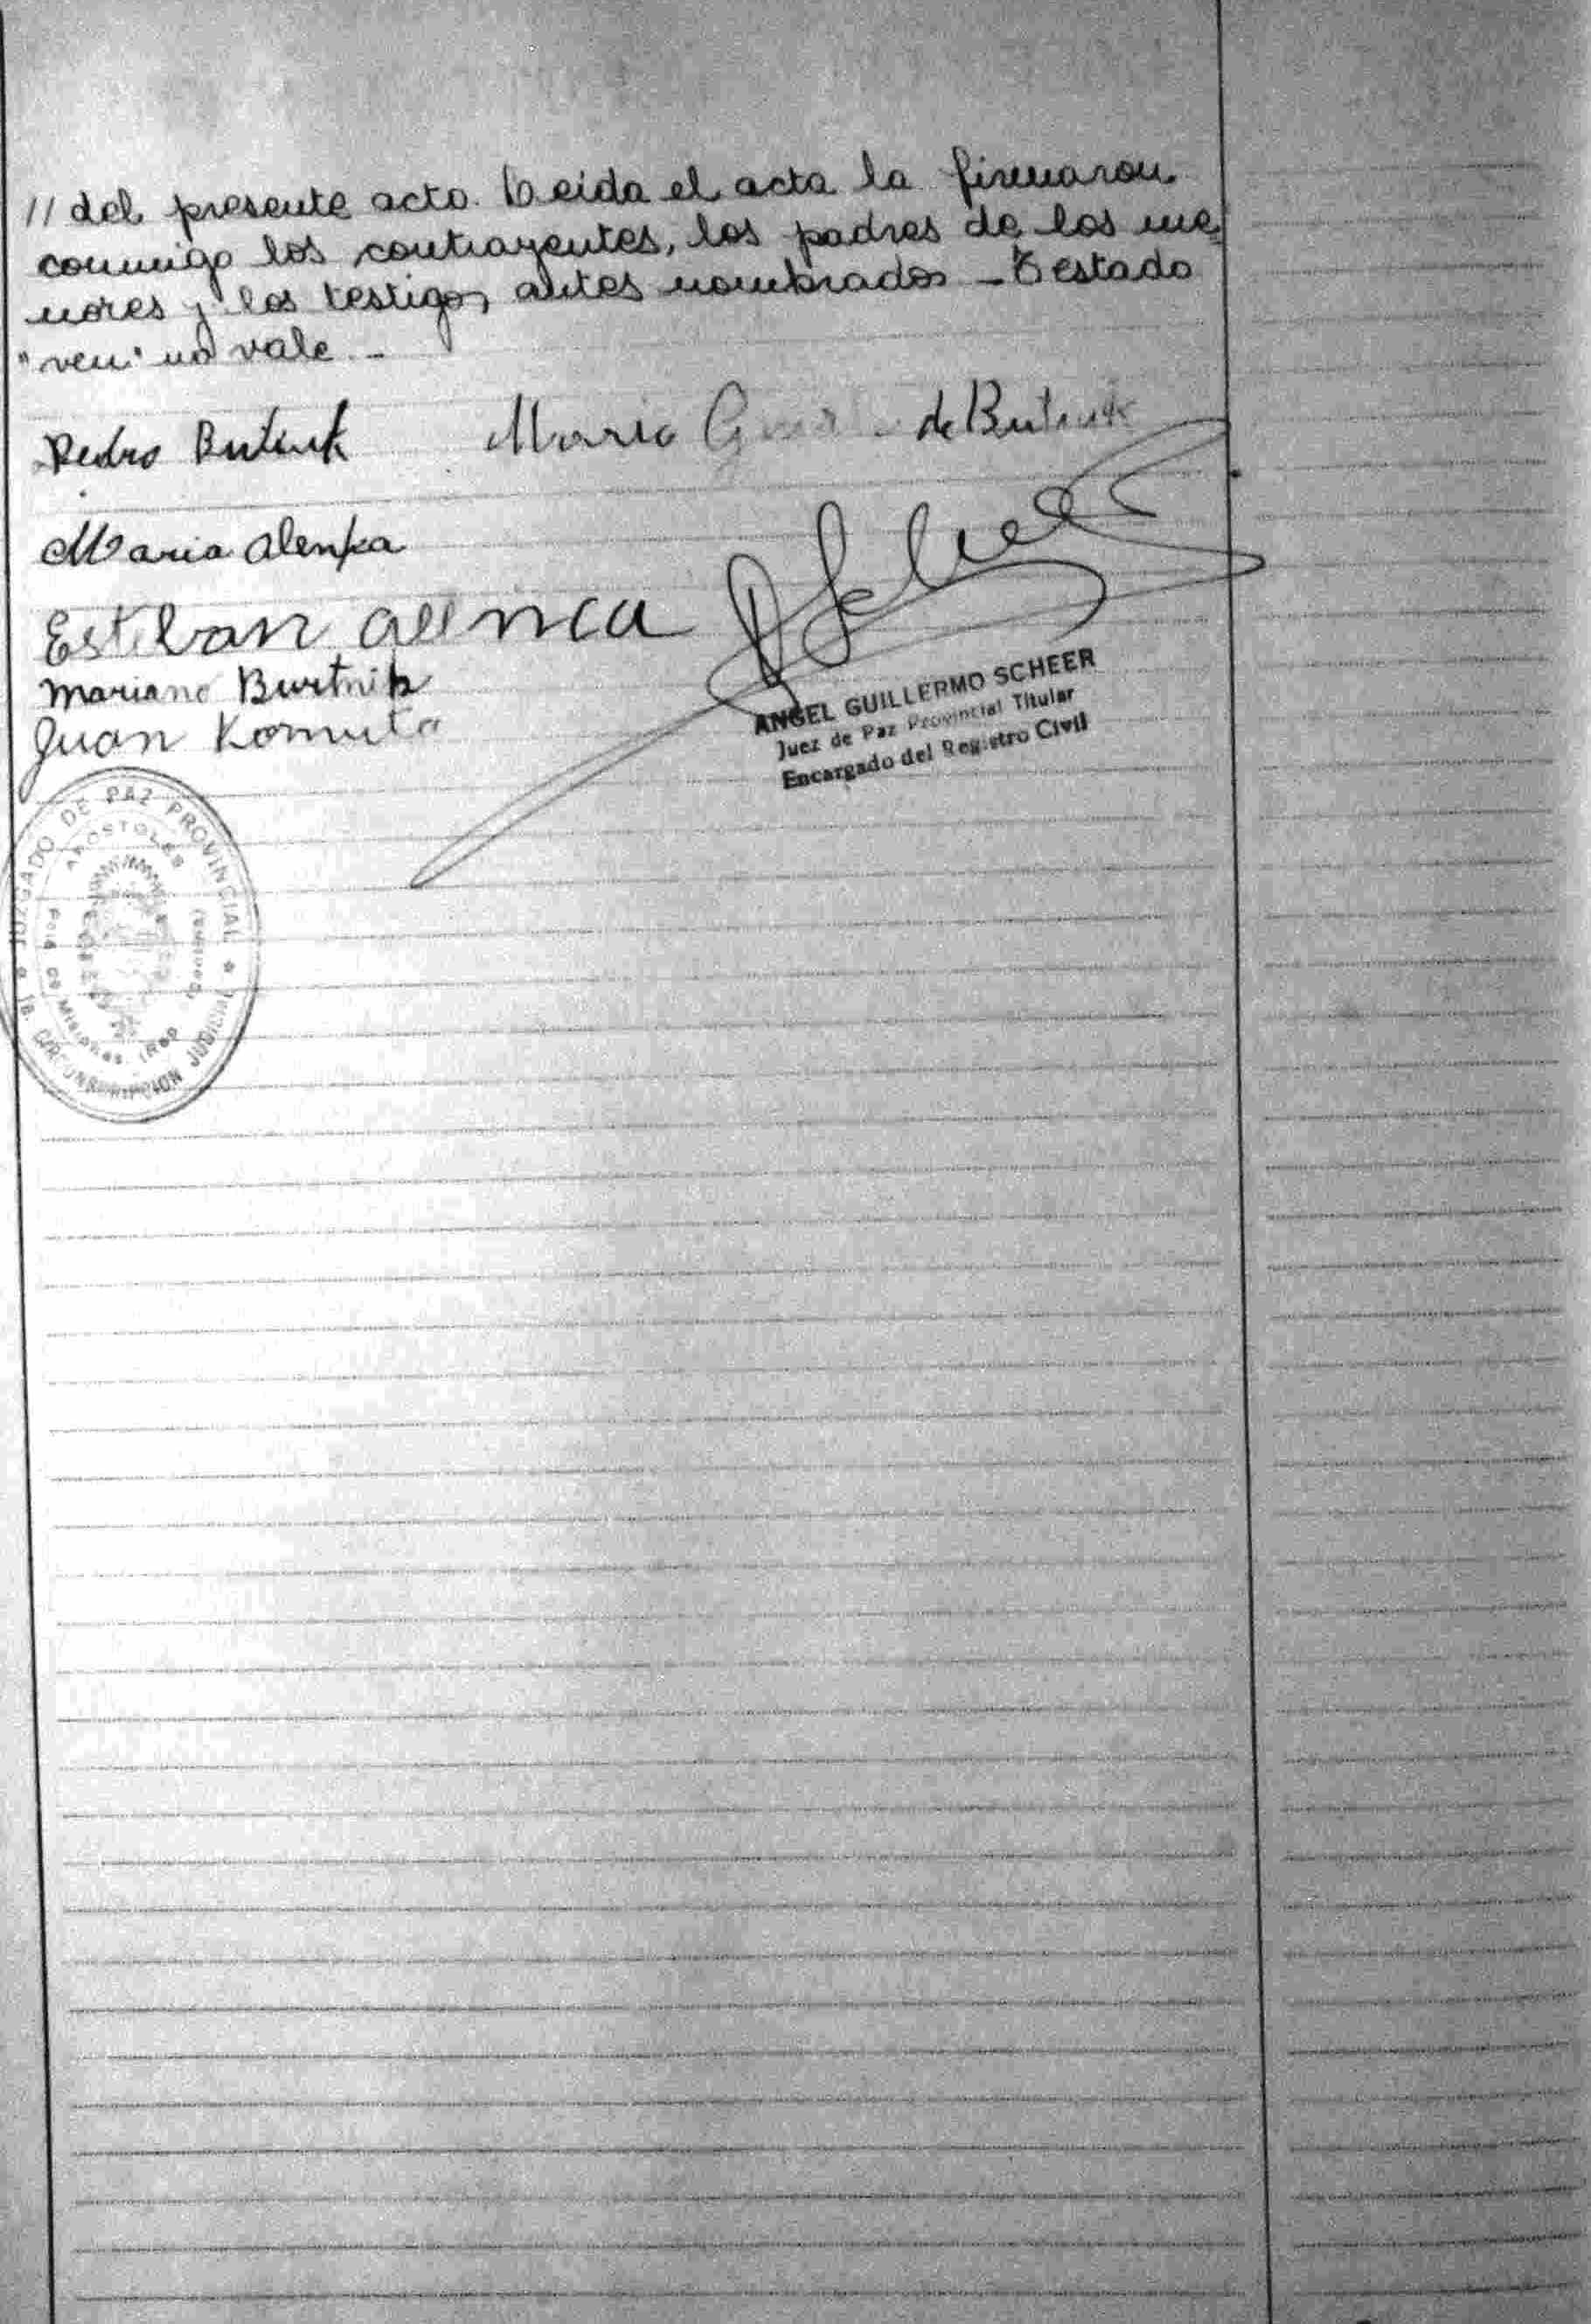 // del presente acto. Leida el acta la firmaron
conmigo los contrayentes, los padres de los me
nores y los testigos antes nombrados - Testado
"ven" no vale. -
Pedro Butiuk Maria de Butiuk
Maria Alenka
Esteban
Mariano Burtnik
Juan Komuta
ANGEL GUILLERMO SCHEER
Juez de Paz Provincial Titular
Encargado del Registro Civil
JUZGADO DE PAZ PROVINCIAL
APOSTOLES
Pcia de Misiones (Rep
CIRCUNSCRIPCION JUDICIAL